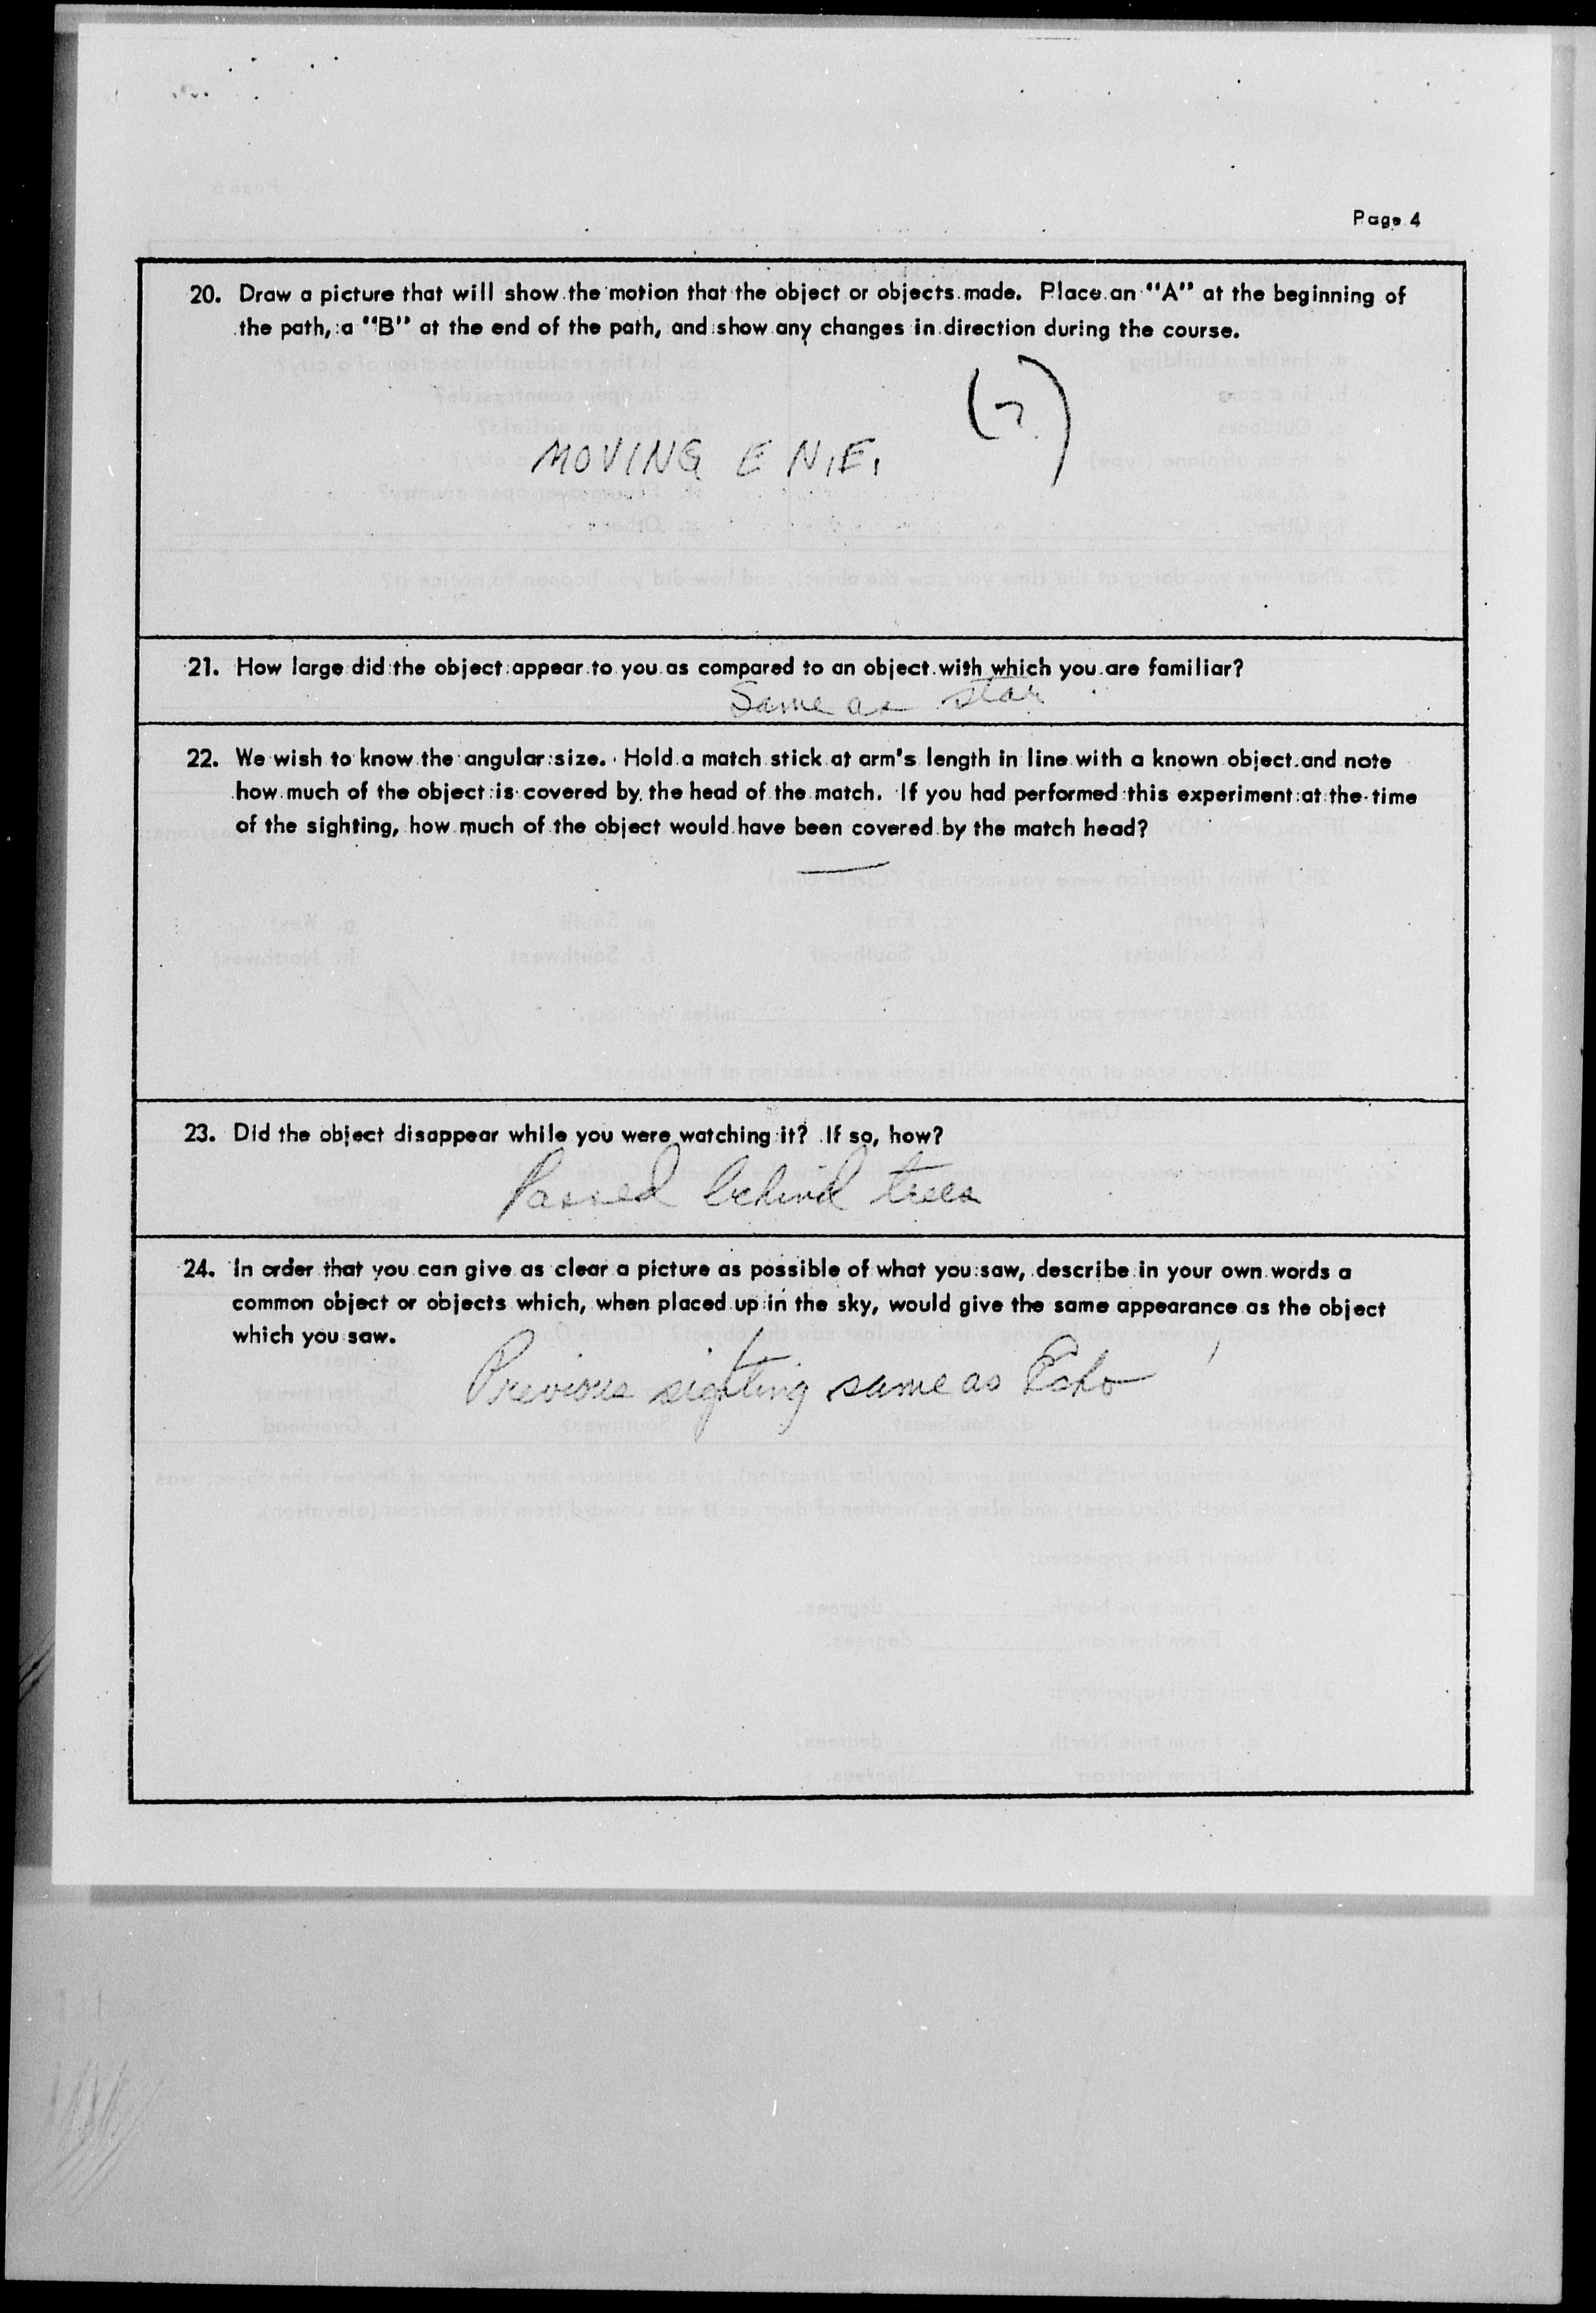 Page 4
20. Draw a picture that will show the motion that the object or objects made. Place an "A" at the beginning of
the path, a "B" at the end of the path, and show any changes in direction during the course.
(?)
MOVING E N.E.
21. How large did the object appear to you as compared to an object with which you are familiar?
Same as star
22. We wish to know the angular size. Hold a match stick at arm's length in line with a known object and note
how much of the object is covered by the head of the match. If you had performed this experiment at the time
of the sighting, how much of the object would have been covered by the match head?
—
23. Did the object disappear while you were watching it? If so, how?
Passed behind trees
24. In order that you can give as clear a picture as possible of what you saw, describe in your own words a
common object or objects which, when placed up in the sky, would give the same appearance as the object
which you saw.
Previous sighting same as Echo